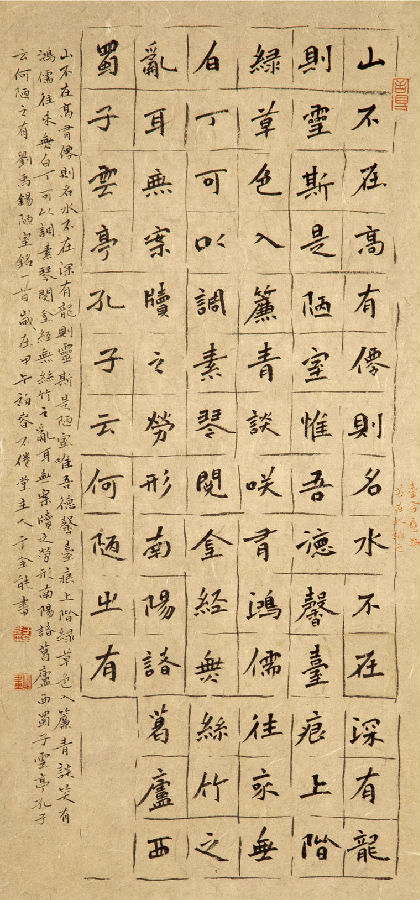 山不在高有僊則名水不在深有龍
則靈斯是陋室惟吾德馨臺痕上階
綠草色入簾青談咲有鴻儒往來無
白丁可以調素琴閱金經無絲竹之
亂耳無案牘之勞形南陽諸葛廬西
蜀子雲亭孔子云何陋之有
山不在高有僊則名水不在深有龍則靈斯是陋室唯吾德馨臺痕上階綠草色入簾青談笑有
鴻儒往來無白丁可以調素琴閱金經無絲竹之亂耳無案牘之勞形南陽諸葛廬西蜀子雲亭孔子
云何陋之有劉禹錫陋室銘一首歲在甲午初不倦堂主人于書